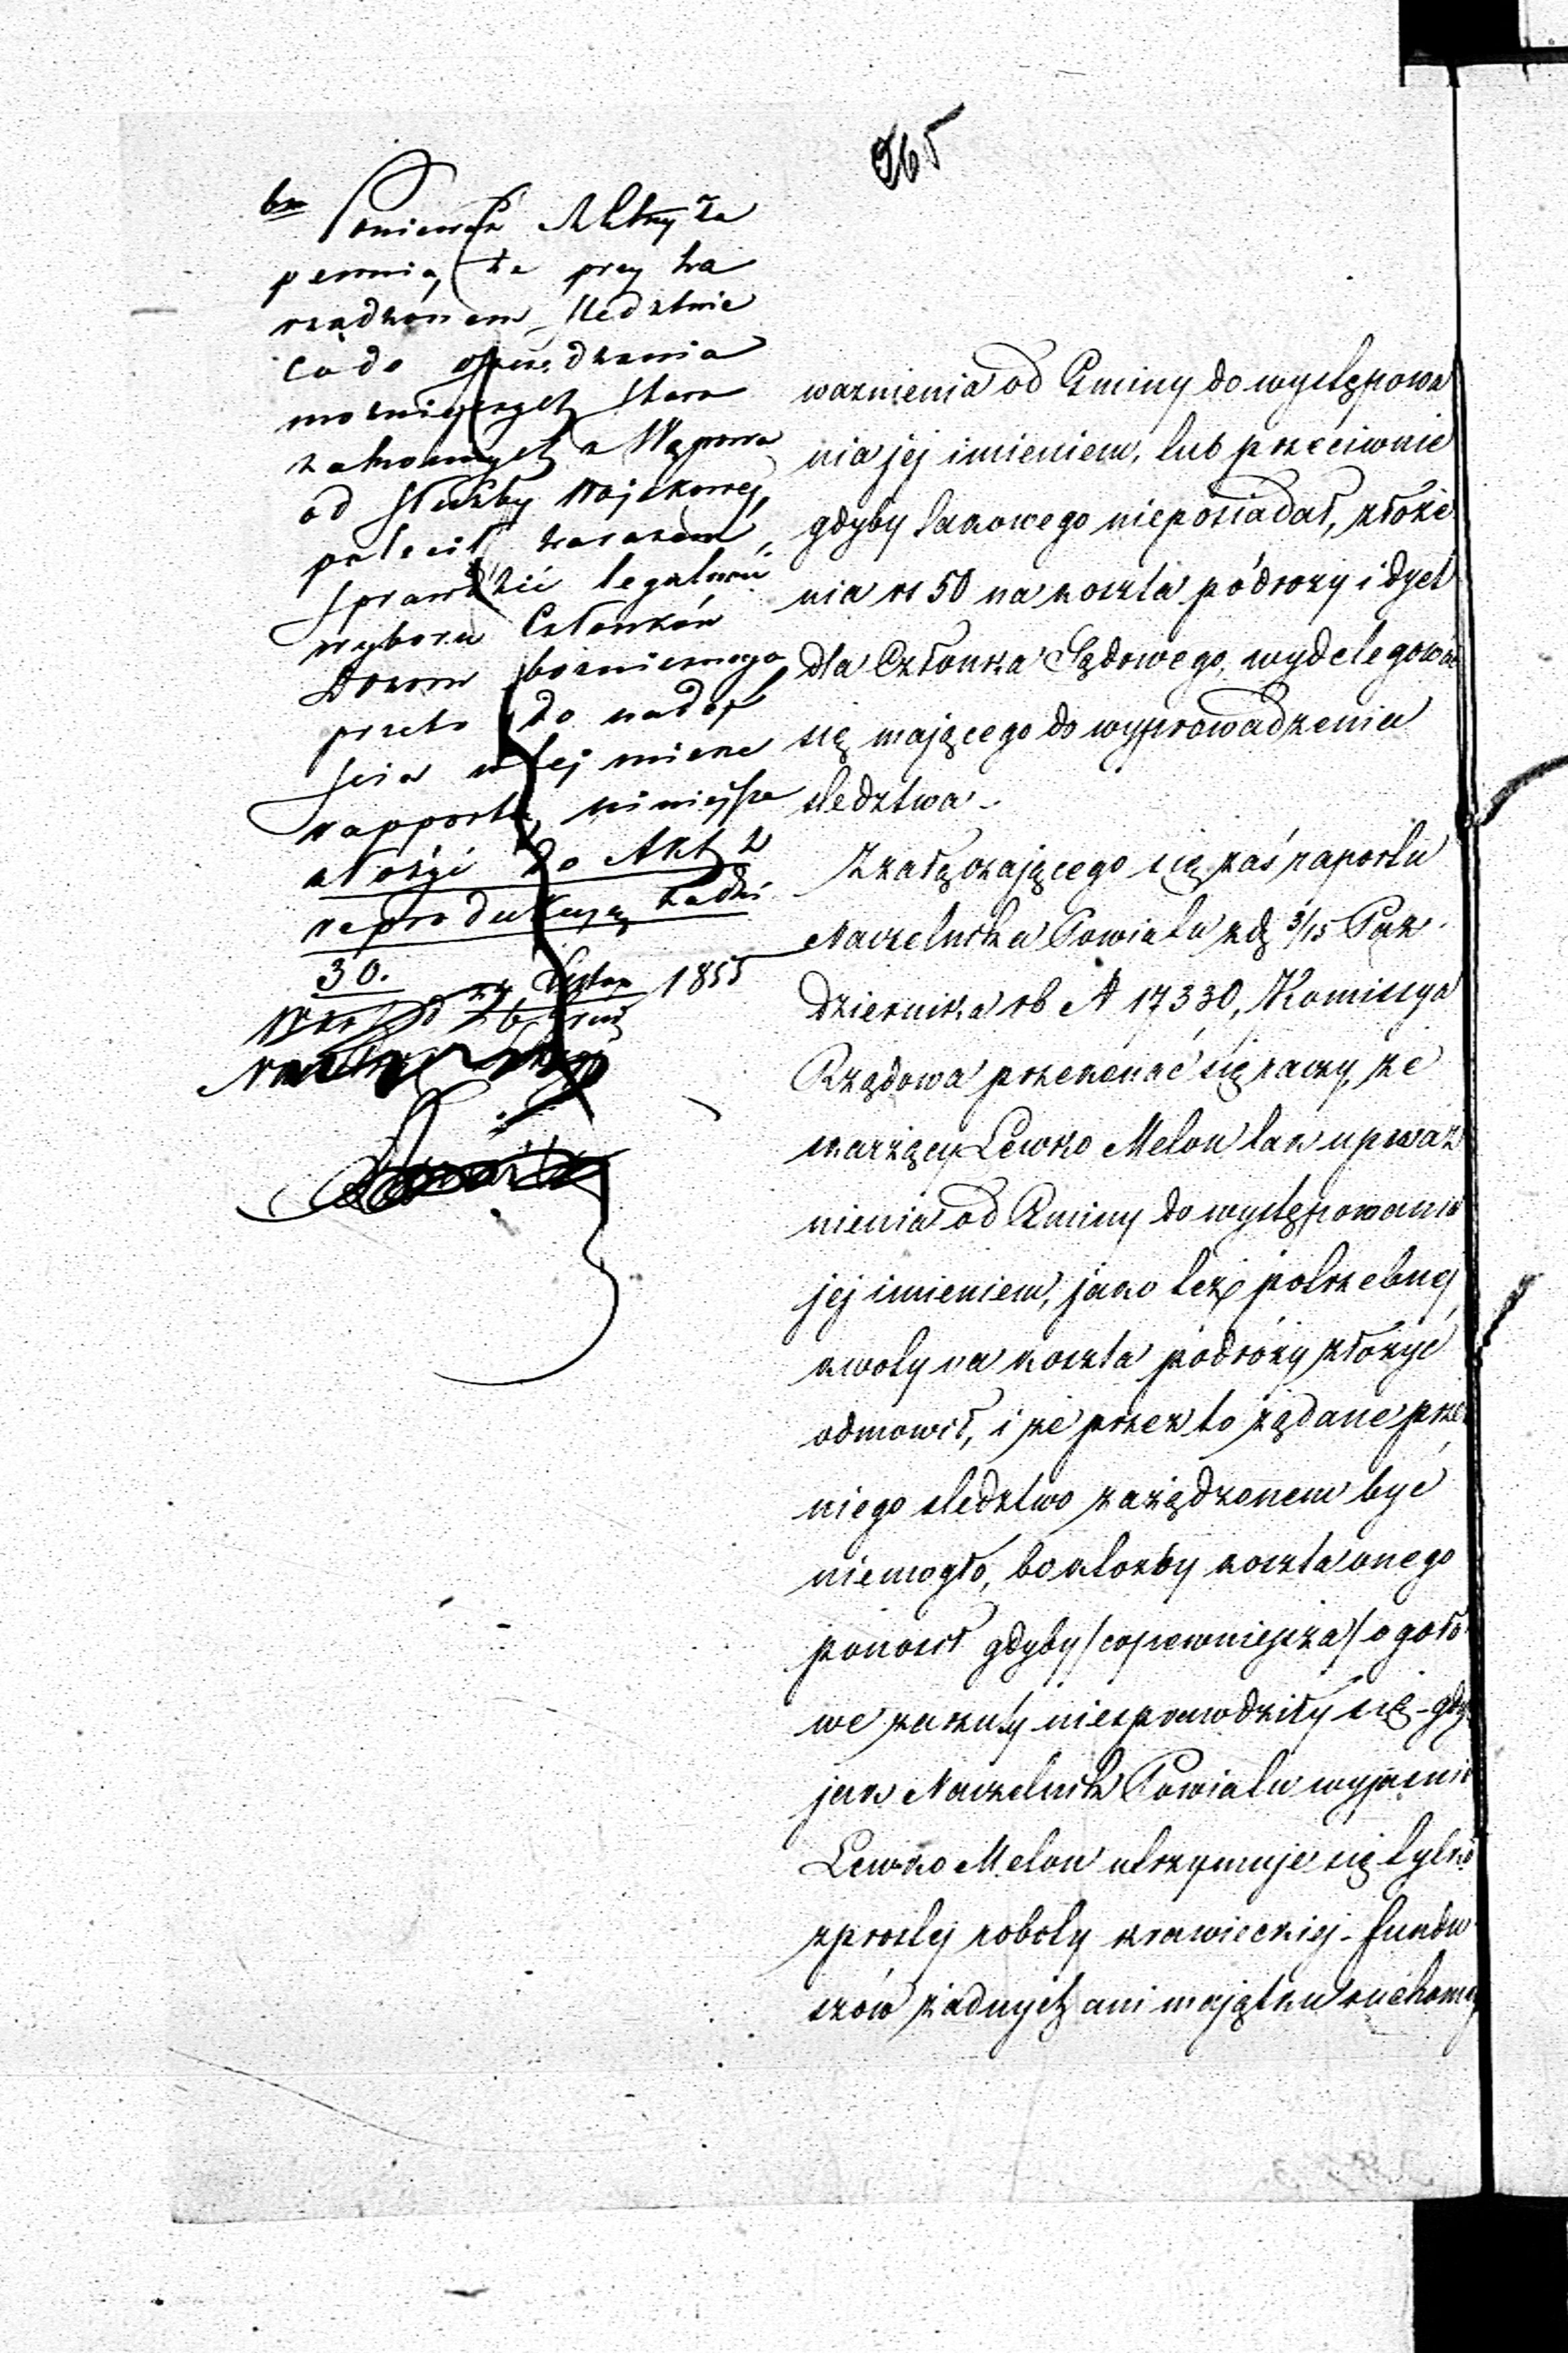 965
bm Ponieważ Mltny Za
pewnia, że przy za
rządzonem sledztwie
co do oszczędzania
możniejszych Staro
zakonnych z Wąwozu
od służby wojskowej,
polecił zarazem,
sprawdzić legalność
wyboru Członków
Dozoru bożniczego
przeto do nadej
ścia w tej mierze
rapportu, niniejsze
złożyć do Akt z
reprodukcyą za dni
30.
Listop 1855
ważnienia od Gminy do występowa
nia jej imieniem, lub przeciwnie
gdyby takowego nieposiadał, złoże
nia rs 50 na koszta pódroży i dyet
dla Członka Sądowego, wydelegować
się mającego do wyprowadzenia
sledztwa.
Z załączającego się zaś raportu
Naczelnika Powiatu z dz 3/15 Paź
dziernika rb N 17330, Kommissya
Rządowa przekonać się raczy, że
skarżący Lewko Melon tak upoważ
nienia od Gminy do występowania
jej imieniem, jako też potrzebnej
kwoty na koszta pódróży złożyć
odmowił, i że przez to żądane prze
niego sledztwo zarządzonem być
niemogło, bo któżby koszta onego
ponosił gdyby /co pewniejsza/ ogoło
we zarzuty niesprawdziły się - gdy
jak Naczelnik Powiatu wyjaśnia
Lewko Melon utrzymuje się tylko
z prostej roboty krawieckiej - fundu
szów żadnych ani majątku ruchomego